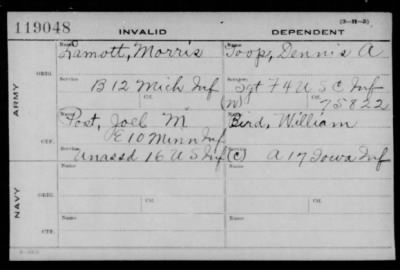 (3-11-3)
119048 INVALID DEPENDENT
Name Name
Lamott, Morris Toop, Dennis A
Service Service
B 12 Mich Inf Sgt F 4 U S C Inf
Ctf. Ctf.
(W) 75822
ORIG.
ARMY
Name Name
Post, Joel M Bird, William
E 10 Minn Inf
CTF.
Service Service
Unassd 16 U S Inf (C) A 17 Iowa Inf
Name Name
ORIG.
NAVY
Name Name
CTF.